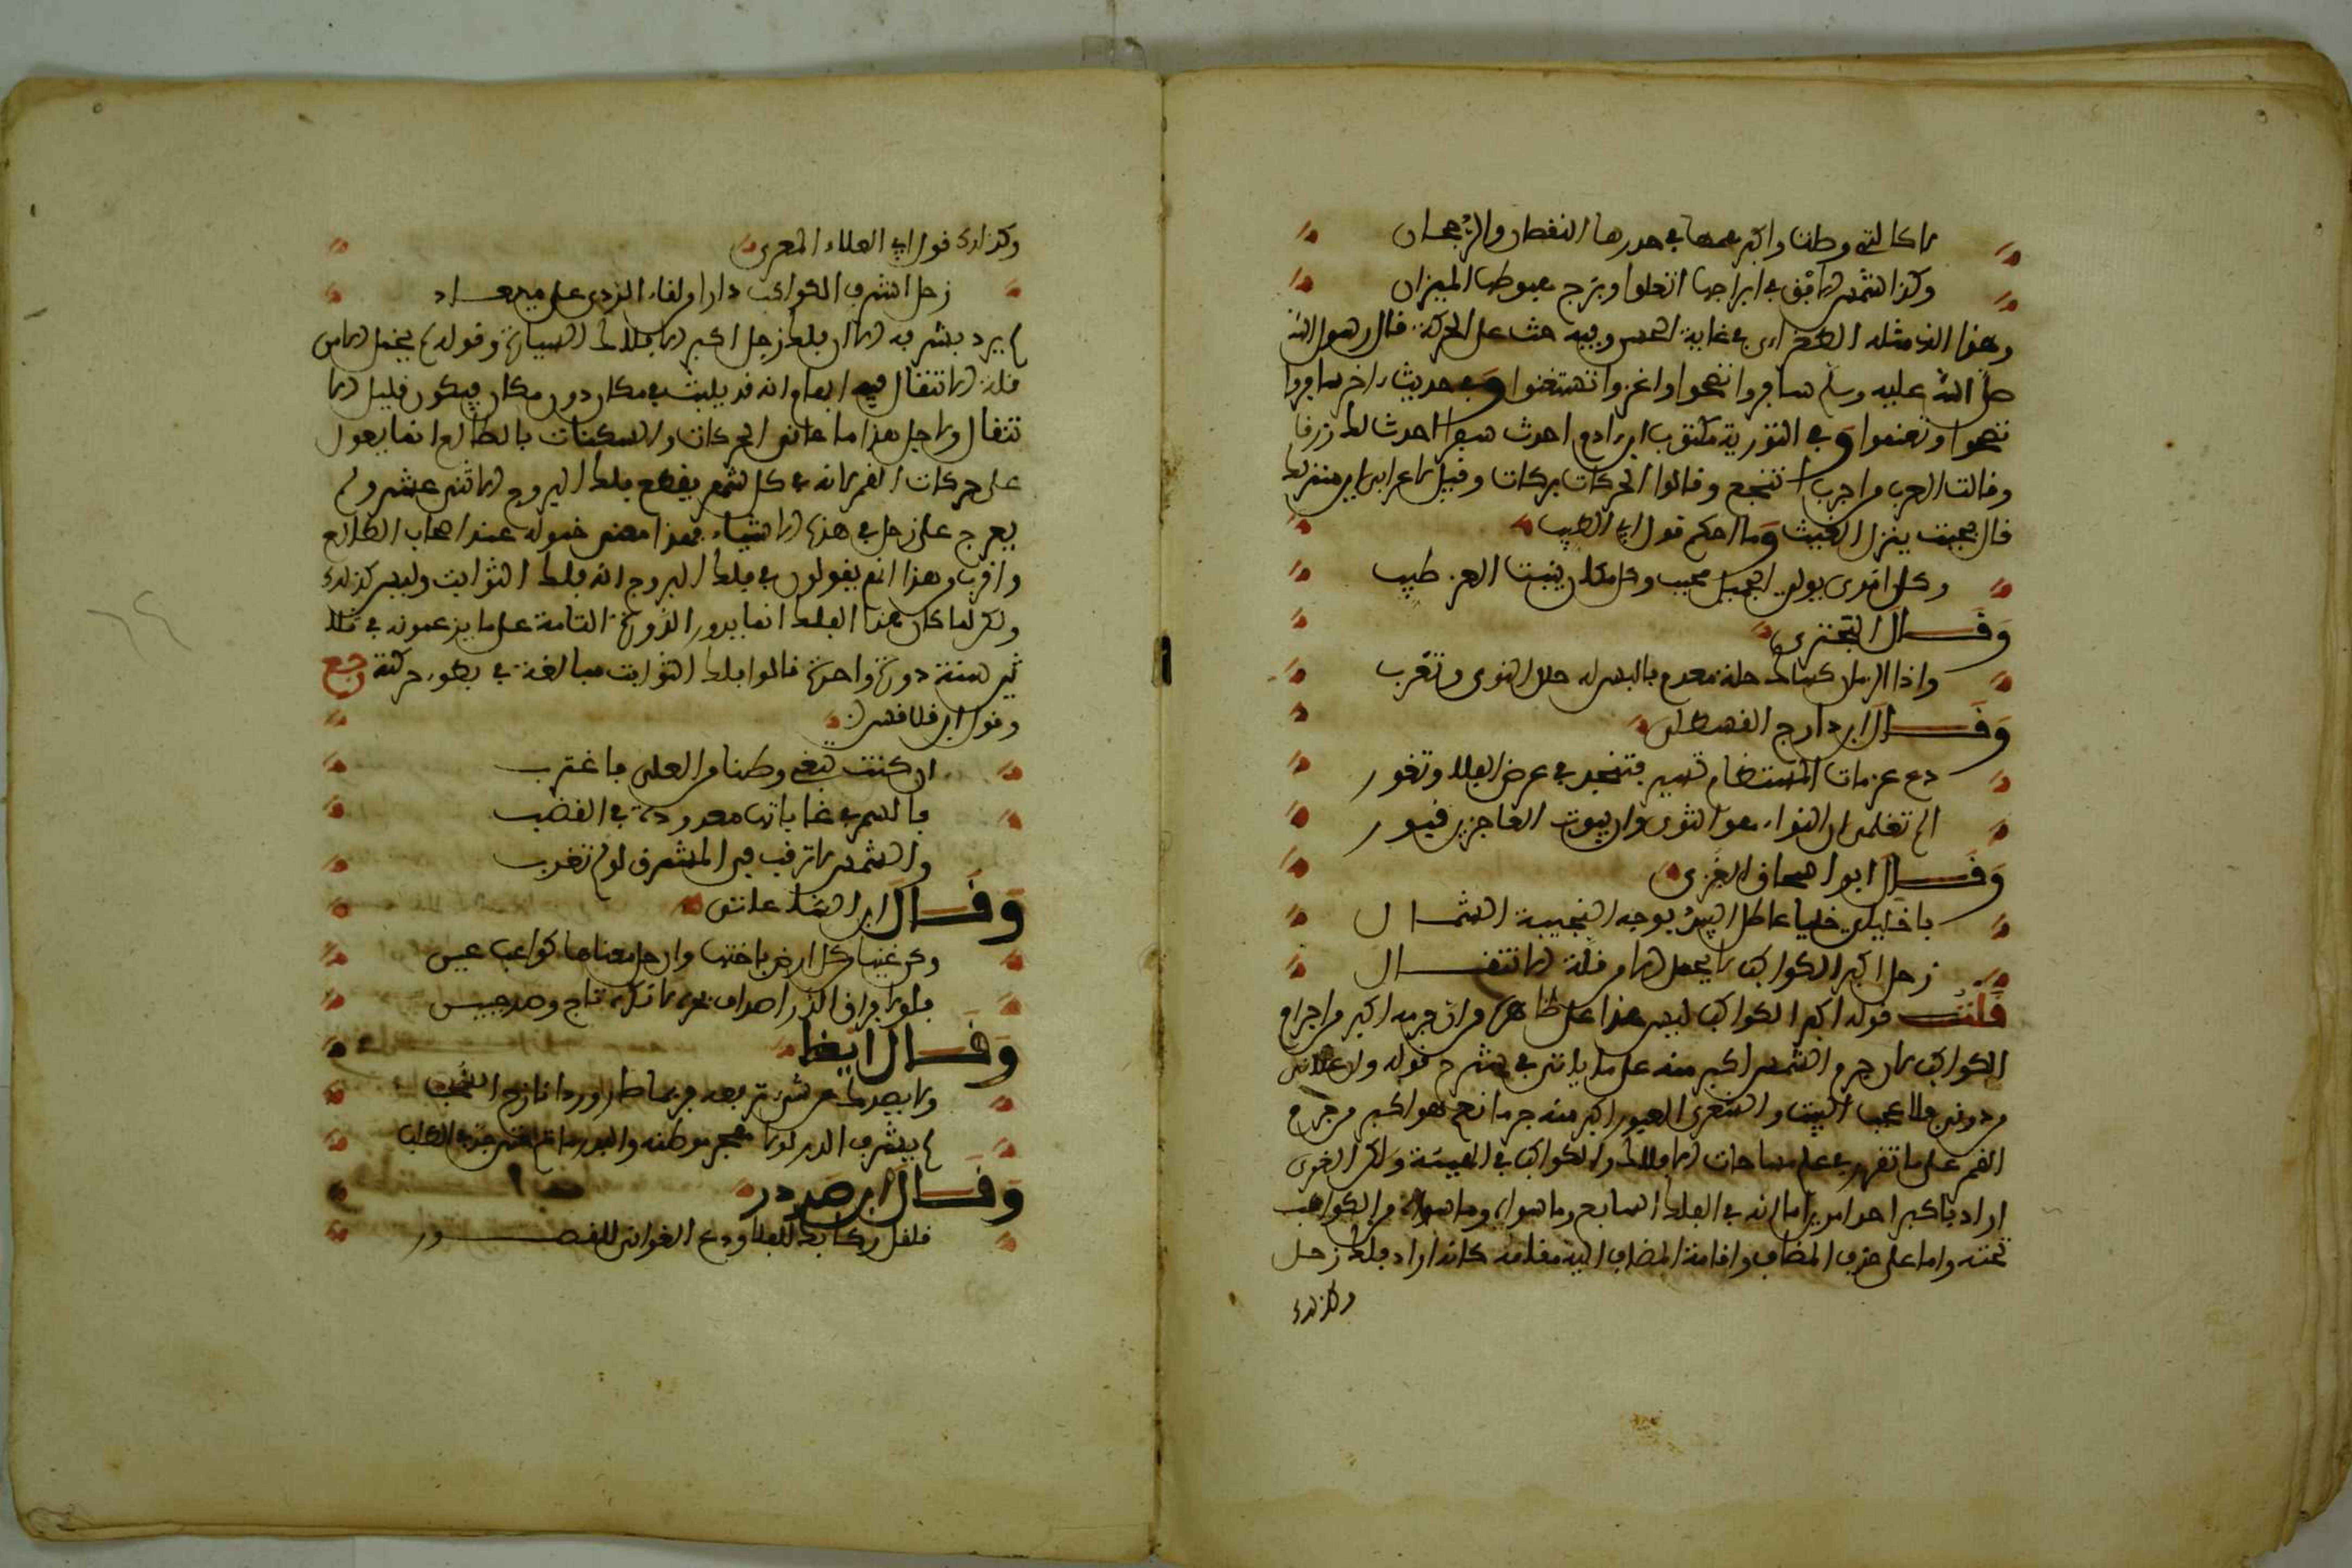 لا كالتي وطنا واكبر همها في صدرها النقصان والرجحان
وكذا الشمس الافق في ابراجها اتعلوا وبرج هبوطها الميزان
وهذا الذي مثله الطغراءى في غاية الحسن وفيه حث على الحركة قال رسول الله
صلى الله عليه وسلم سافروا تصحوا واغزوا تستغنوا وفي حديث ءاخر سافروا
تصحوا وتغنموا وفي التورية مكتوب ابن ءادم احدث سفرا احدث لك رزقا
وقالت العرب من اجدب انتجع وقالوا الحركات بركات وقيل لاعرابي اين منزلك
قال بحيث ينزل الغيث وما احكم قول ابي الطيب
وكل امرئ يولي الجميل محبب وكل مكان ينبت العز طيب
وقال البحتري
واذا الزمان كساك حلة معدم فالبس له حلل النوى وتغرب
وقال ابن دراج القسطلي
دعي عزمات المستضام تسير فتنجد في عرض الفلا وتغور
الم تعلمي ان الثواء هو الثوى وان بيوت العاجزين قبور
وقال ابو اسحاق الغزي
زحل اكبر الكواكب لا يحمل الا من قلة الانتقال
قلت قوله اكبر الكواكب ليس هذا على ظاهره من ان جرمه اكبر من اجرام
الكواكب لان جرم الشمس اكبر منه على ما ياتي في شرح قوله وان علاني
من دوني فلا عجب البيت والشعرى العبور اكبر منه جرما نعم هو اكبر من جرم
القمر على ما تقرر في علم مساحات الافلاك والكواكب في الهيئة ولكن الغزي
اراد باكبر احد امرين اما انه في الفلك السابع وما سواه من الكواكب
تحته واما على حذف المضاف واقامة المضاف اليه مقامه كانه اراد فلك زحل
وكذلك
وكذلك قول ابي العلاء المعري
زحل اشرف الكواكب دارا من لقاء الردى على ميعاد
لم يرد بشرفه الا ان فلك زحل اكبر الافلاك السيارة وقوله لم يخمل الا من
قلة الانتقال فيه ايهام انه قد يلبث في مكان دون مكان فيكون قليل الا
نتقال ولاجل هذا ما عانى الحركات والسكنات بالطالع انما يعول
على حركات القمر لانه في كل شهر يقطع فلك البروج الاثني عشر ولم
يعرج على زحل في هذه الاشياء فهذا معنى خموله عند اصحاب الطالع
واقرب من هذا انهم يقولون في فلك البروج انه فلك الثوابت وليس كذلك
ولكن لما كان هذا الفلك انما يدور الدورة التامة على ما يزعمونه في ثلا
ثين سنة دورة واحدة قالوا فلك الثوابت مبالغة في بطء حركته رجع
وقول ابن قلاقس
ان كنت تبغي وطنا من العلى فاغترب
فالسمر في غاباتها معدودة في القضب
والشمس لا ترقب في المشرق لو لم تغرب
وقال ابن الساعاتي
وقال ايضا
لم يشرف الدر لولا هجر موطنه
وقال ابن صردر
قلقل ركابك للفلا ودع الغواني للقصور